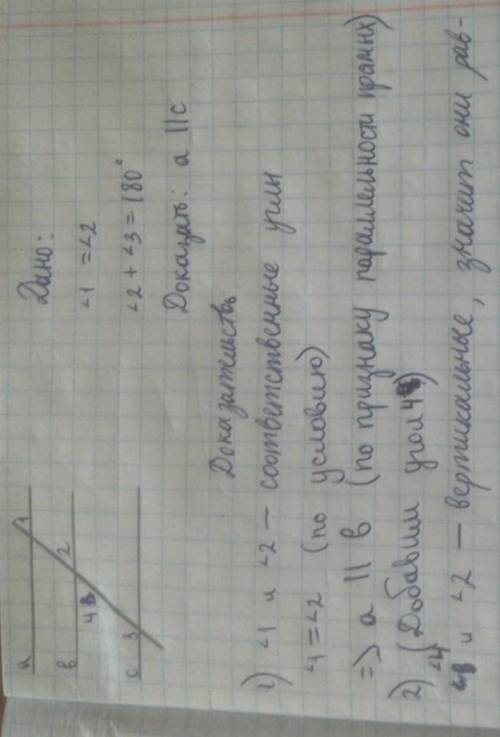 a
1
b
2
4
c
3
Дано:
∠1 = ∠2
∠2 + ∠3 = 180°
Доказать: a || c
Доказательство
1) ∠1 и ∠2 – соответственные углы
∠1 = ∠2 (по условию)
=> a || b (по признаку параллельности прямых)
2) (Добавим угол 4)
∠4 и ∠2 – вертикальные, значит они рав-